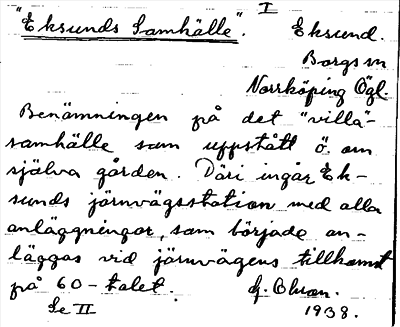 I
"Eksunds Samhälle". Eksund.
Borgs sn
Norrköping Ögl.
Benämningen på det "villa"-
samhälle som uppstått ö. om
själva gården. Däri ingår Ek-
sunds järnvägsstation med alla
anläggningar, som började an-
läggas vid järnvägens tillkomst
på 60-talet.
Se II
1938.